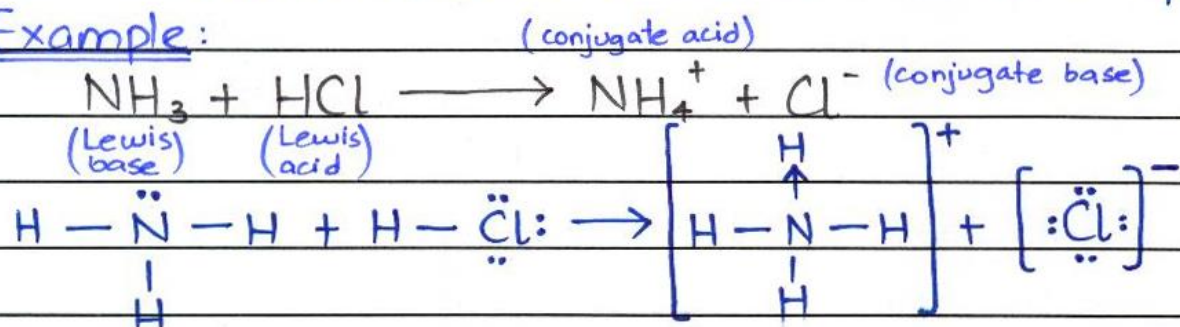 Example:
(conjugate acid)
NH₃ + HCl ⟶ NH₄⁺ + Cl⁻ (conjugate base)
(Lewis base) (Lewis acid)
H — N̈ — H + H — C̈l: ⟶ [H — N — H]⁺ + [:C̈l:]⁻
H
H
H